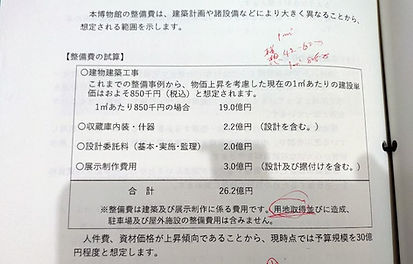 本博物館の整備費は、建築計画や諸設備などにより大きく異なることから、
想定される範囲を示します。
1㎡
【整備費の試算】
〇建物建築工事
これまでの整備事例から、物価上昇を考慮した現在の1㎡あたりの建設単
価はおよそ850千円（税込）と想定されます。
1㎡あたり850千円の場合 19.0億円
〇収蔵庫内装・什器 2.2億円（設計を含む。）
〇設計委託料（基本・実施・監理） 2.0億円
〇展示制作費用 3.0億円（設計及び据付けを含む。）
合計 26.2億円
※整備費は建築及び展示制作に係る費用です。用地取得並びに造成、
駐車場及び屋外施設の整備費用は含みません。
人件費、資材価格が上昇傾向であることから、現時点では予算規模を30億
円程度と想定します。